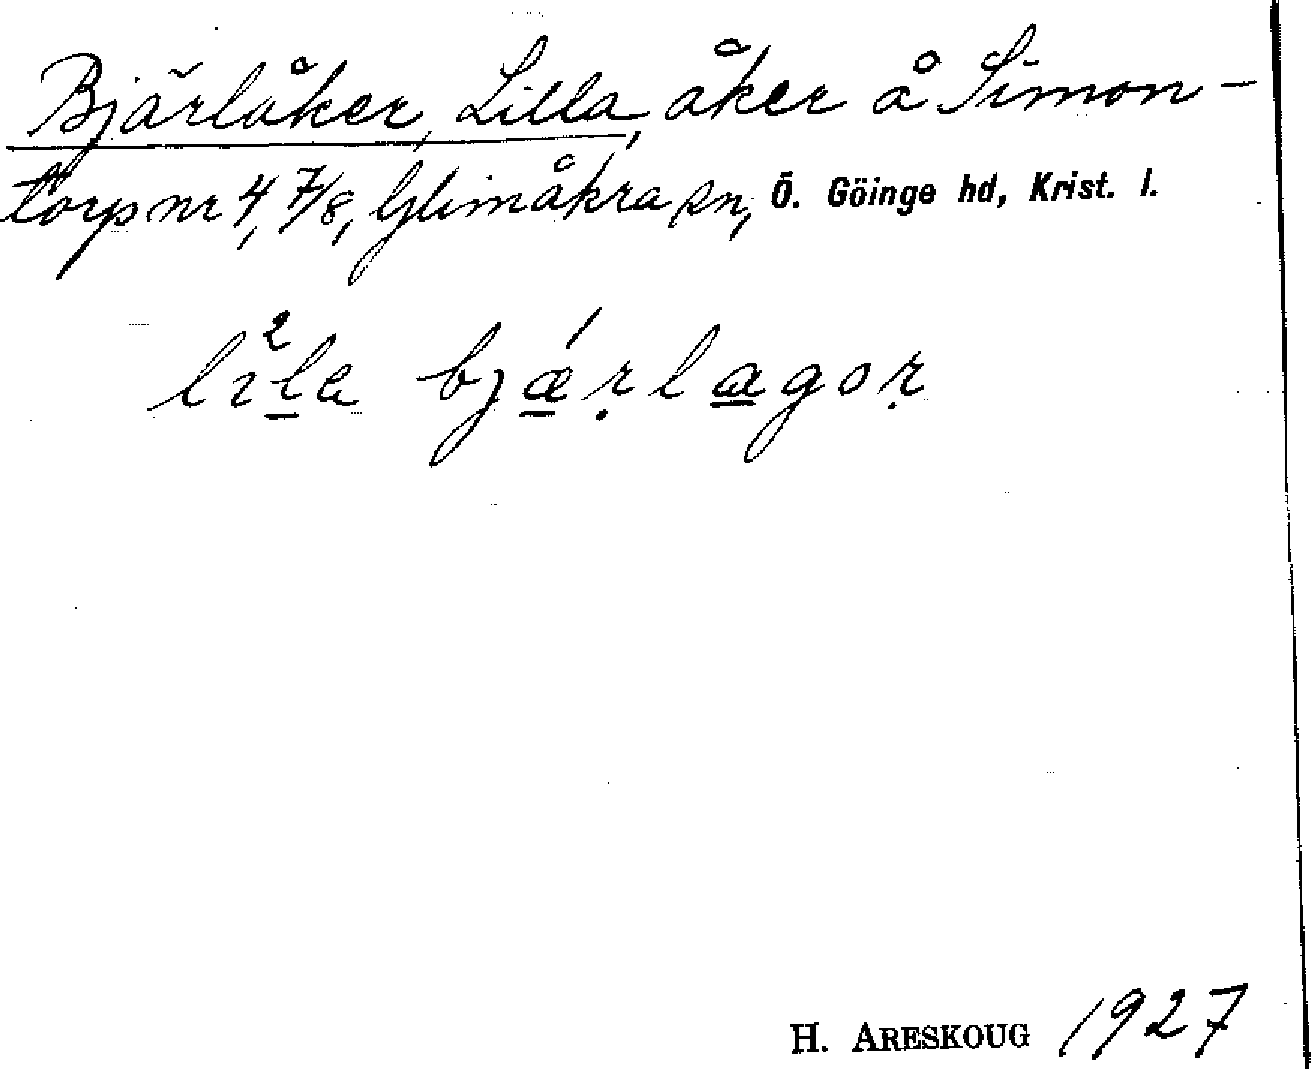 Bjärlåker, Lilla, åker å Simon-
torp nr 4, 7/8, Glimåkra sn, Ö. Göinge hd, Krist. l.
lı²la bjǽrlagor
H. ARESKOUG 1927